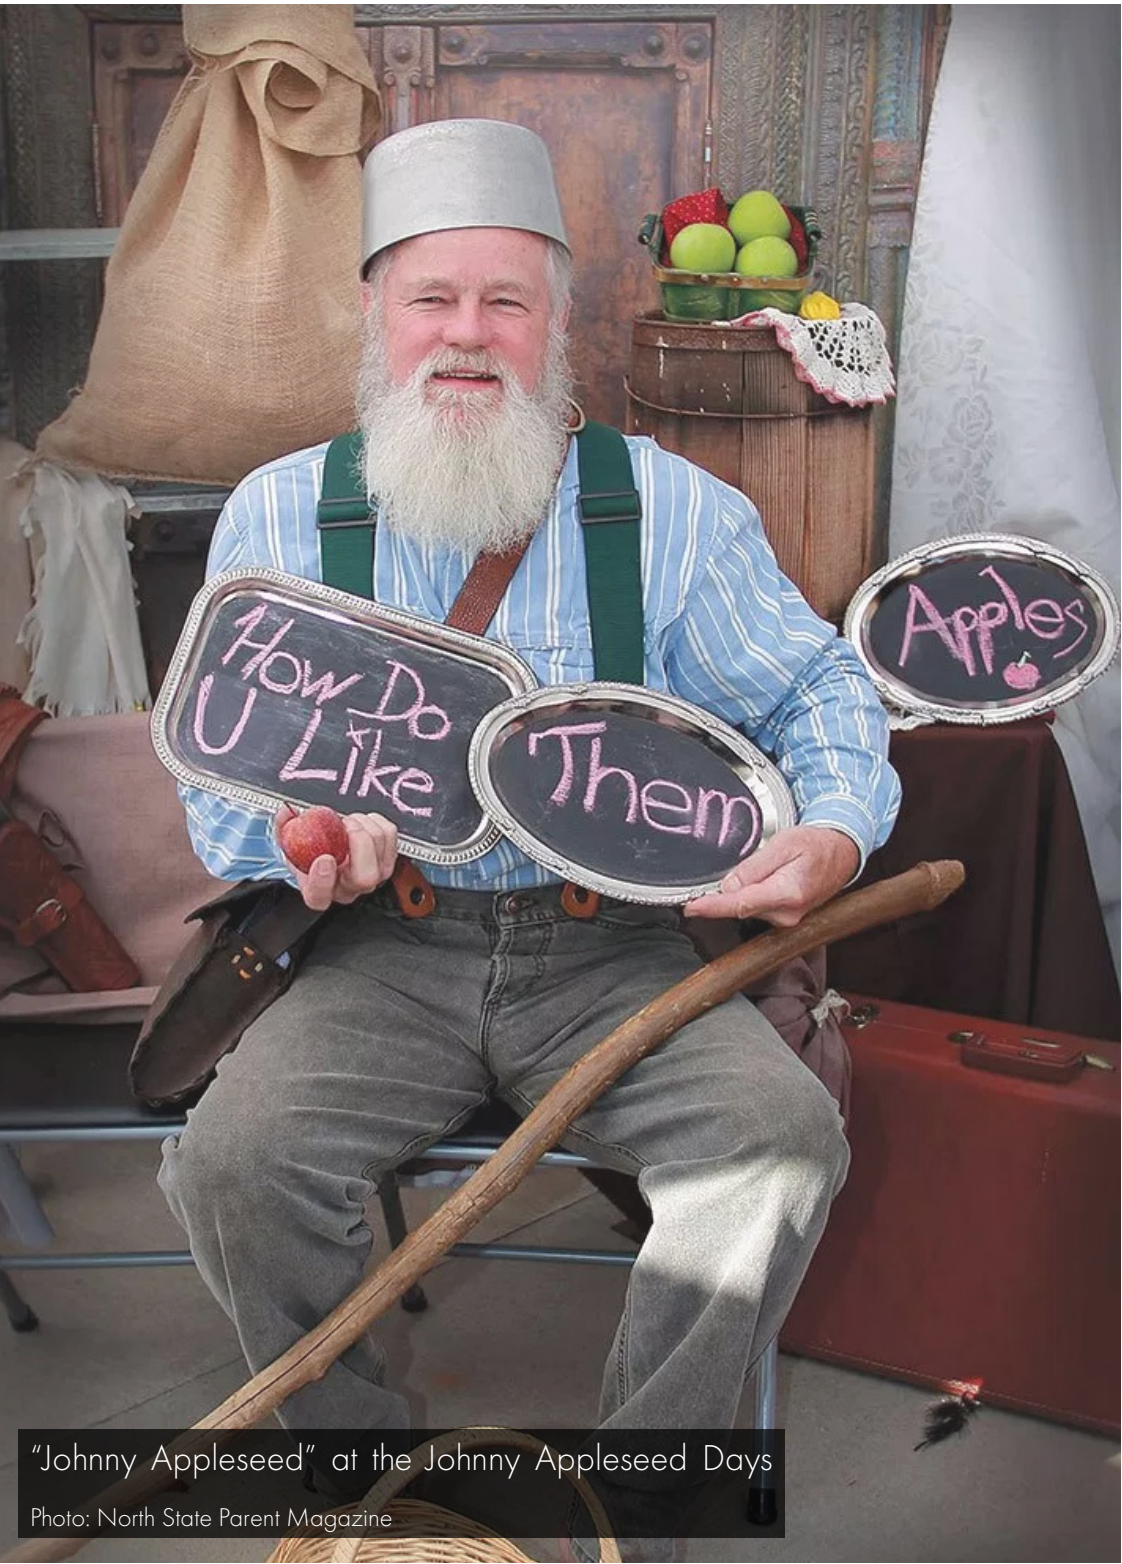 How Do
U Like
Them
Apples
“Johnny Appleseed” at the Johnny Appleseed Days
Photo: North State Parent Magazine